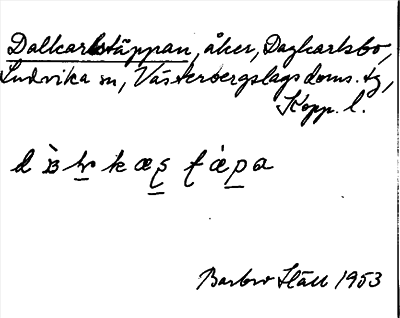 Dalkarlstäppan, åker, Dagkarlsbo,
Ludvika sn, Västerbergslags doms. tg,
Kopp. l.
Barbro Häll 1953